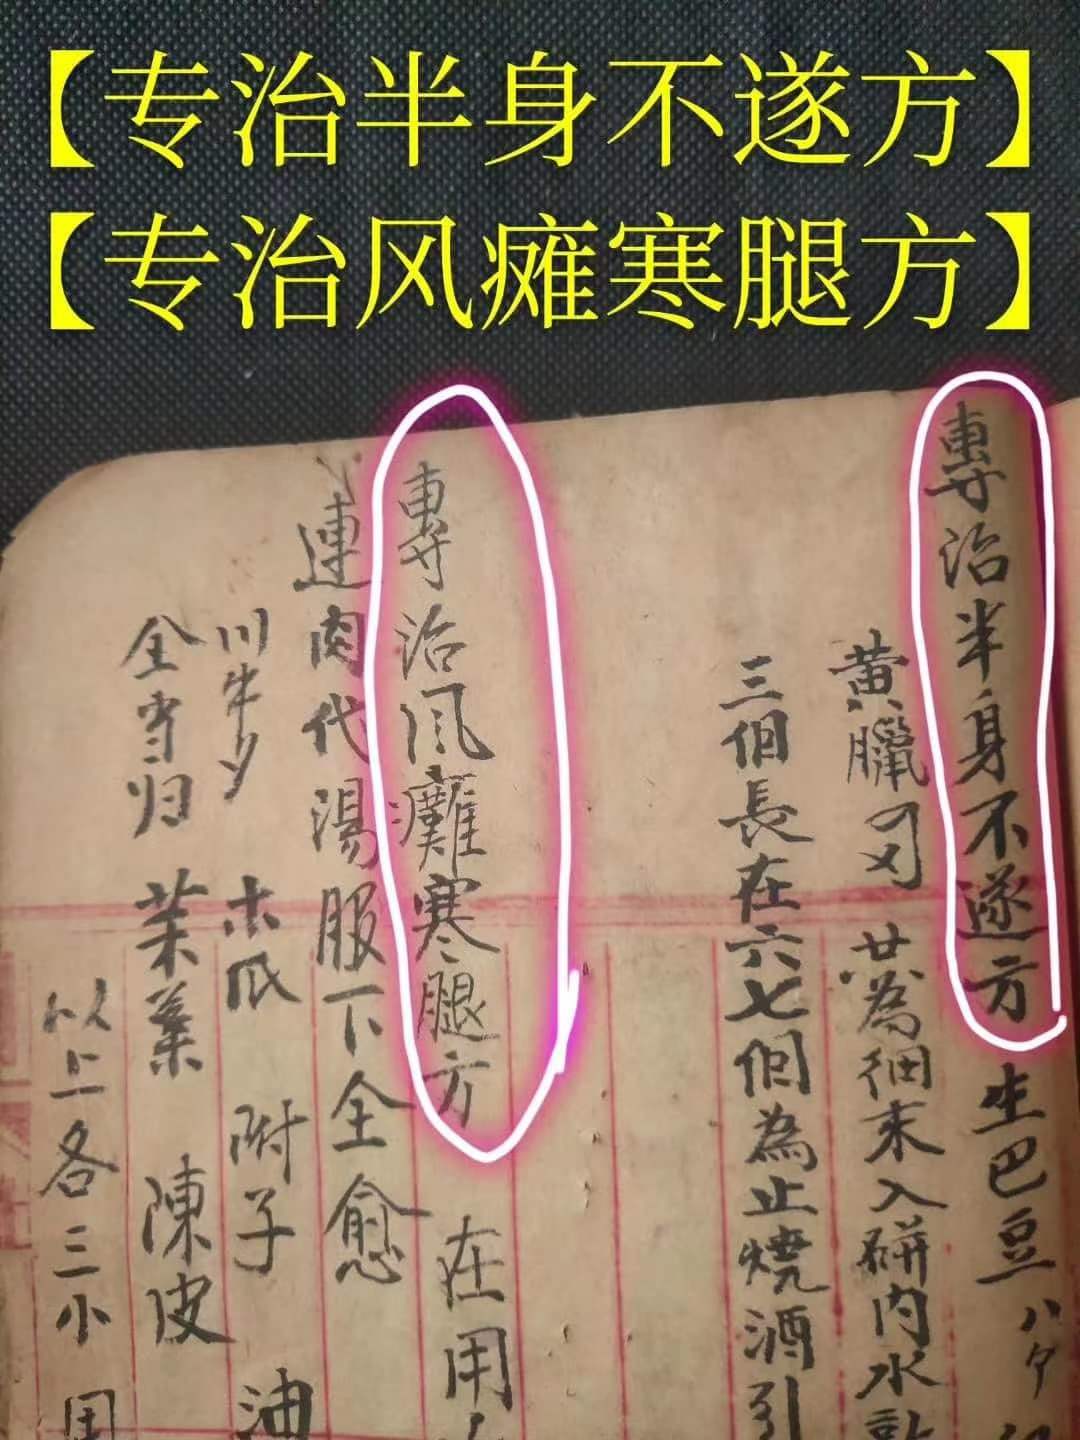 【专治半身不遂方】
【专治风瘫寒腿方】
專治半身不遂方 生巴豆
黄臘 共為細末入硑内水
三個長在六七個為止燒酒引
專治风癱寒腿方 在用
連肉代湯服下全愈
川牛夕 木瓜 附子 油
全当归 茱萸 陳皮
以上各三小